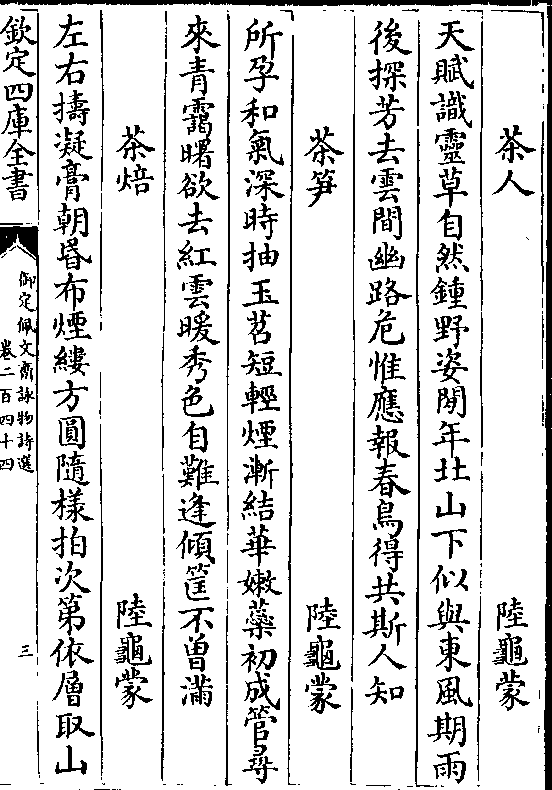 茶人 陸龜蒙
天賦識靈草自然鍾野姿閒年北山下似與東風期雨
後探芳去雲間幽路危惟應報春鳥得共斯人知
茶笋 陸龜蒙
所孕和氣深時抽玉苕短輕煙漸結華嫩蘂初成管尋
來青靄曙欲去紅雲暖秀色自難逢傾筐不曽滿
茶焙 陸龜蒙
左右擣凝膏朝昏布煙縷方圓隨樣拍次第依層取山
欽定四庫全書
御定佩文齋詠物詩選
卷二百四十四
三